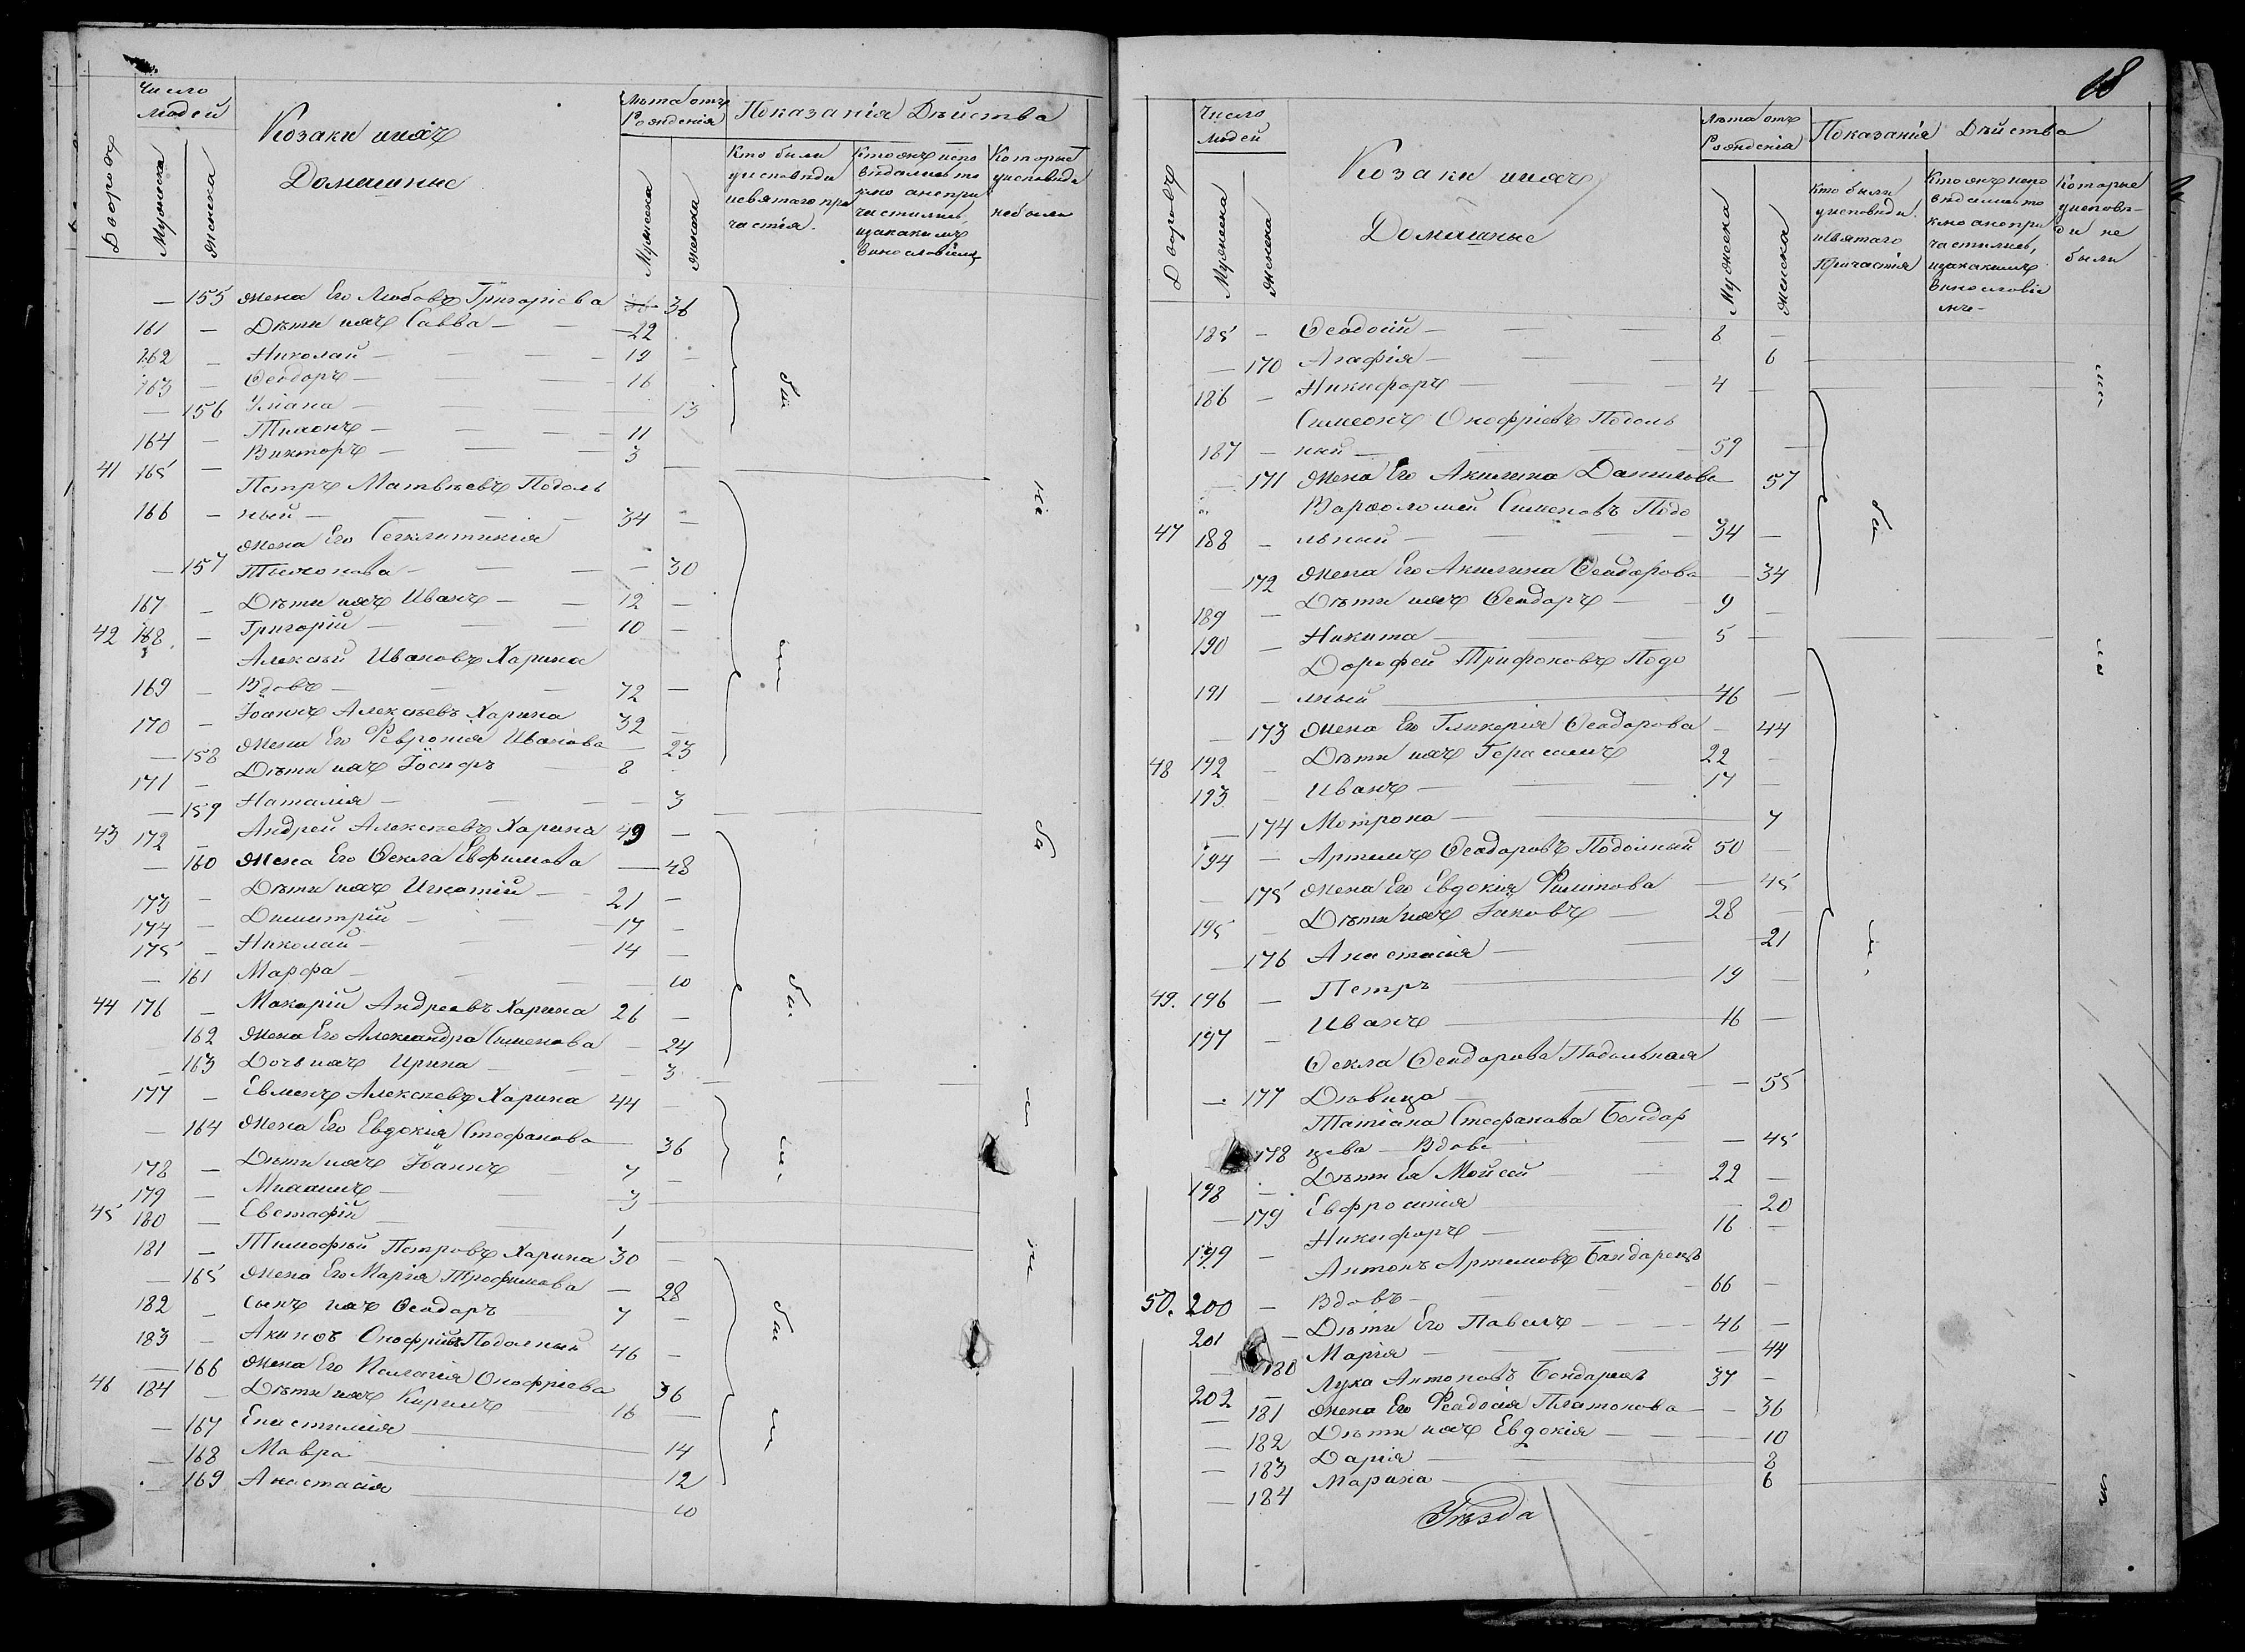 Число людей
Козаки ихъ
Домашные
Лѣта отъ Рожденія
Показанія Дѣйства
Дворовъ
Мужеска
Женска
Мужеска
Женска
Кто были у исповѣди и святаго причастія.
Кто жъ исповѣдались токмо а не причастились, и за какимъ винословіемъ
Которые у исповѣди не были
— 155 жена Его Любовь Григоріева 36
161 — Дѣти ихъ Савва — 22
162 — Николай — 19 —
163 — Ѳеодоръ — 16
— 156 Уліана — 13
164 — Тихонъ — 11
41 165 — Викторъ — 3
Петръ Матвѣевъ Подоль
166 — ный — 34 —
жена Его
— 157 Тихонова — 30
167 — Дѣти ихъ Иванъ — 12 —
42 168 — Григорій — 10 —
Алексѣй Ивановъ Харина
169 — Вдовъ — 72 —
170 — Іоаннъ Алексѣевъ Харина 32 —
— 158 жена Его Февронія Иванова — 23
171 — Дѣти ихъ Іосифъ 8 —
— 159 Наталія — 3
43 172 — Андрей Алексѣевъ Харина 49 —
— 160 жена Его Ѳекла Евфимова — 48
173 — Дѣти ихъ Игнатій — 21 —
174 — Димитрій — 17 —
175 — Николай — 14 —
— 161 Марфа — 10
44 176 — Макарій Андреевъ Харина 26 —
162 жена Его Александра Симеонова — 24
— 163 Дочь ихъ Ирина — 3
177 — Евменъ Алексѣевъ Харина 44 —
— 164 жена Его Евдокія Стефанова — 36
178 — Дѣти ихъ Іоаннъ 7 —
179 — Михаилъ — 3
45 180 — Евстафій — 1
181 — Тимофѣй Петровъ Харина 30 —
— 165 жена Его Марія Трофимова — 28
182 — Сынъ ихъ Ѳеодоръ 7 —
183 — Онофріевъ Подолный 46 —
— 166 жена Его Пелагія Онофріева 36
46 184 — Дѣти ихъ Кирилъ 16 —
— 167 14
— 168 Мавра 12
— 169 Анастасія 10
18
Число людей
Козаки ихъ
Домашные
Лѣта отъ Рожденія
Показанія Дѣйства
Дворовъ
Мужеска
Женска
Мужеска
Женска
Кто были у исповѣди и святаго Причастія
Кто жъ исповѣдались токмо а не причастились, и за какимъ винословіемъ
Которые у исповѣди не были
185 — Ѳеодосій — 8 —
— 170 Агафія — 6
186 — Никифоръ — 4 —
Симеонъ Онофріевъ Подоль
187 — ный — 59 —
— 171 жена Его Акилина Данилова 57
Варѳоломей Симеоновъ Подо
47 188 — льный — 34 —
— 172 жена Его Акилина Ѳеодорова — 34
189 — Дѣти ихъ Ѳеодоръ — 9 —
190 — Никита — 5 —
Дорофей Трифоновъ Подо
191 — лный 46 —
— 173 жена Его Гликерія Ѳеодорова — 44
48 192 — Дѣти ихъ Герасимъ 22 —
193 — Иванъ — 17 —
— 174 Мотрона — 7
194 — Артемъ Ѳеодоровъ Подолный 50 —
— 175 жена Его Евдокія Филипова — 45
195 — Дѣти ихъ Іаковъ — 28 —
— 176 Анастасія — 21
49. 196 — Петръ 19 —
197 — Иванъ 16 —
Ѳекла Ѳеодорова Подольная
— 177 Дѣвица — 55
Татіана Стефанова Бондар
178 цева — Вдова — 45
198 — Дѣти Ея Мойсей — 22 —
— 179 Евфросинія — 20
199 — Никифоръ 16 —
Антонъ Артемовъ Бандарецъ
50. 200 — Вдовъ — 66 —
201 — Дѣти Его Павелъ — 46 —
— 180 Марія — 44
202 — Лука Антоновъ Бондарецъ 37 —
— 181 жена Его Феодосія Платонова — 36
— 182 Дѣти ихъ Евдокія — 10
— 183 Дарія — 8
— 184 Марина — 6